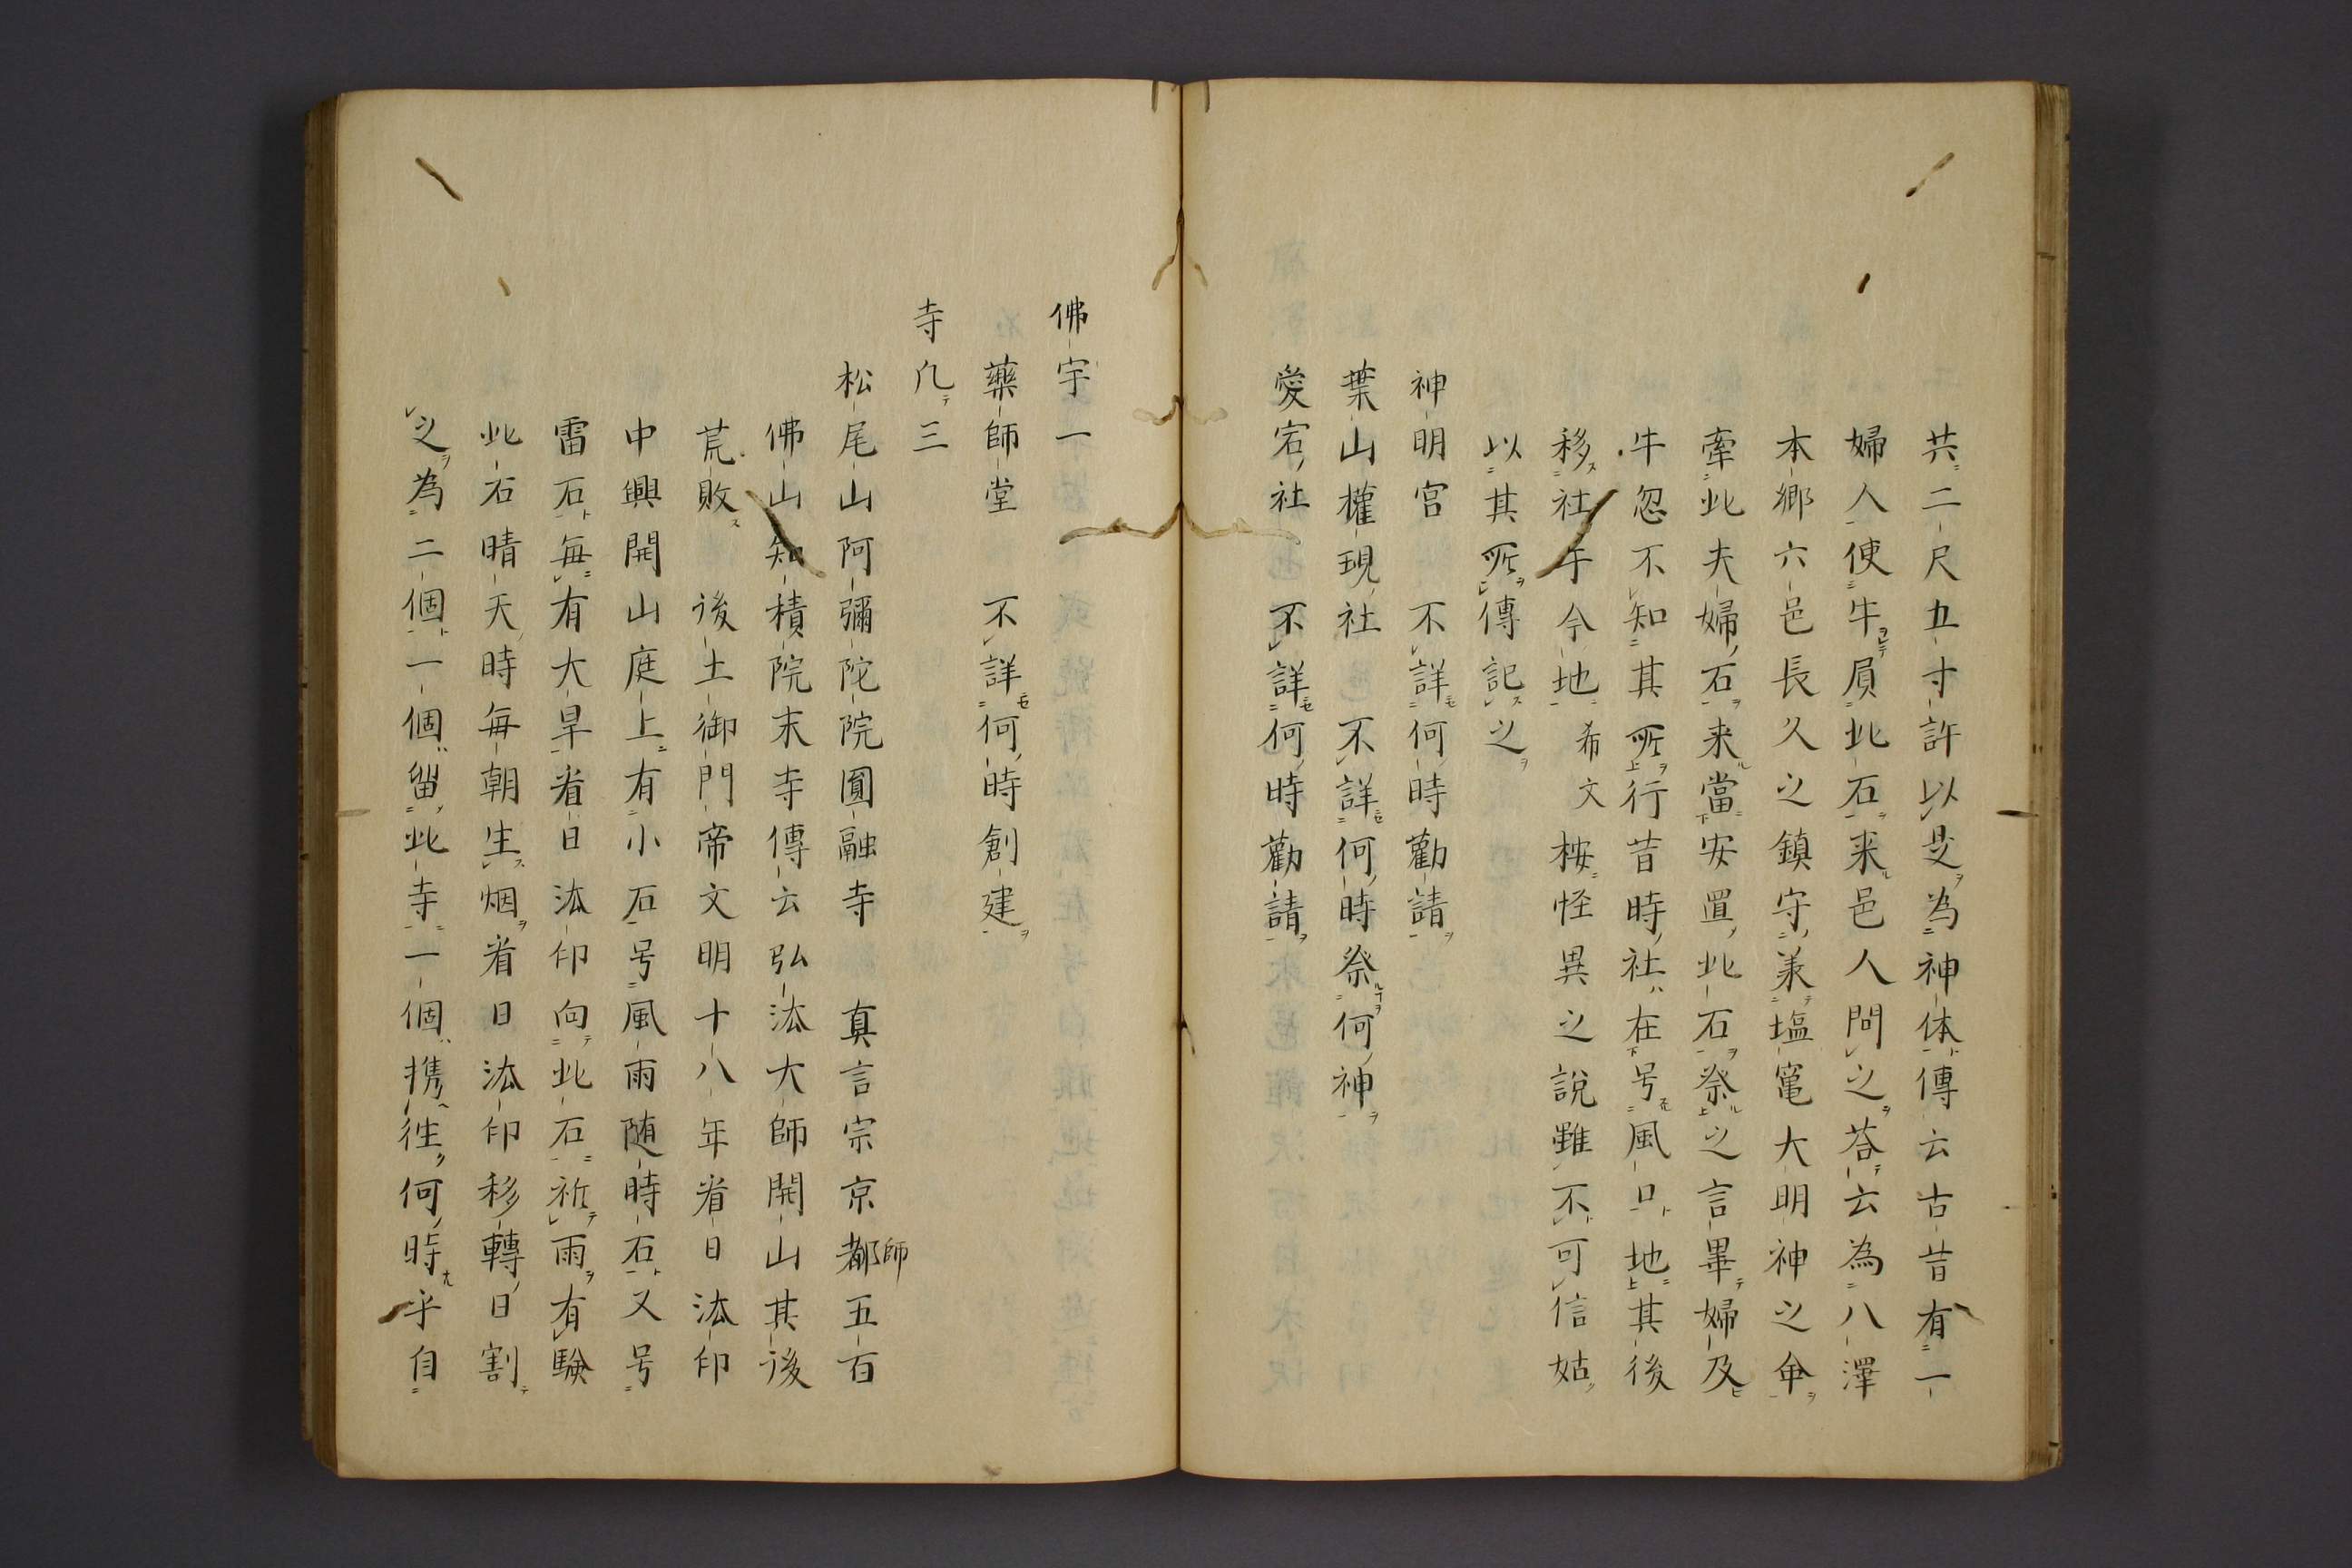 共二尺五寸許以是為神体傳云古昔有一
婦人使牛屓此石来邑人問之荅云為八澤
本郷六邑長久之鎮守羕塩竃大明神之命
牽此夫婦石来當安置此石祭之言畢婦及
牛忽不知其所行昔時社在号風口地其後
移社于今地希文桉怪異之說雖不可信姑
以其所傳記之
神明宮 不詳何時勸請
葉山權現社 不詳何時祭何神
愛宕社 不詳何時勸請
佛宇一
藥師堂 不詳何時創建
寺凡三
松尾山阿彌陀院圓融寺 真言宗京都師五百
佛山知積院末寺傳云弘法大師開山其後
荒敗 後土御門帝文明十八年省日法印
中興開山庭上有小石号風雨随時石又号
雷石每有大旱省日法印向此石祈雨有験
此石晴天時每朝生烟省日法印移轉日割
之為二個一個留此寺一個携往何時乎自